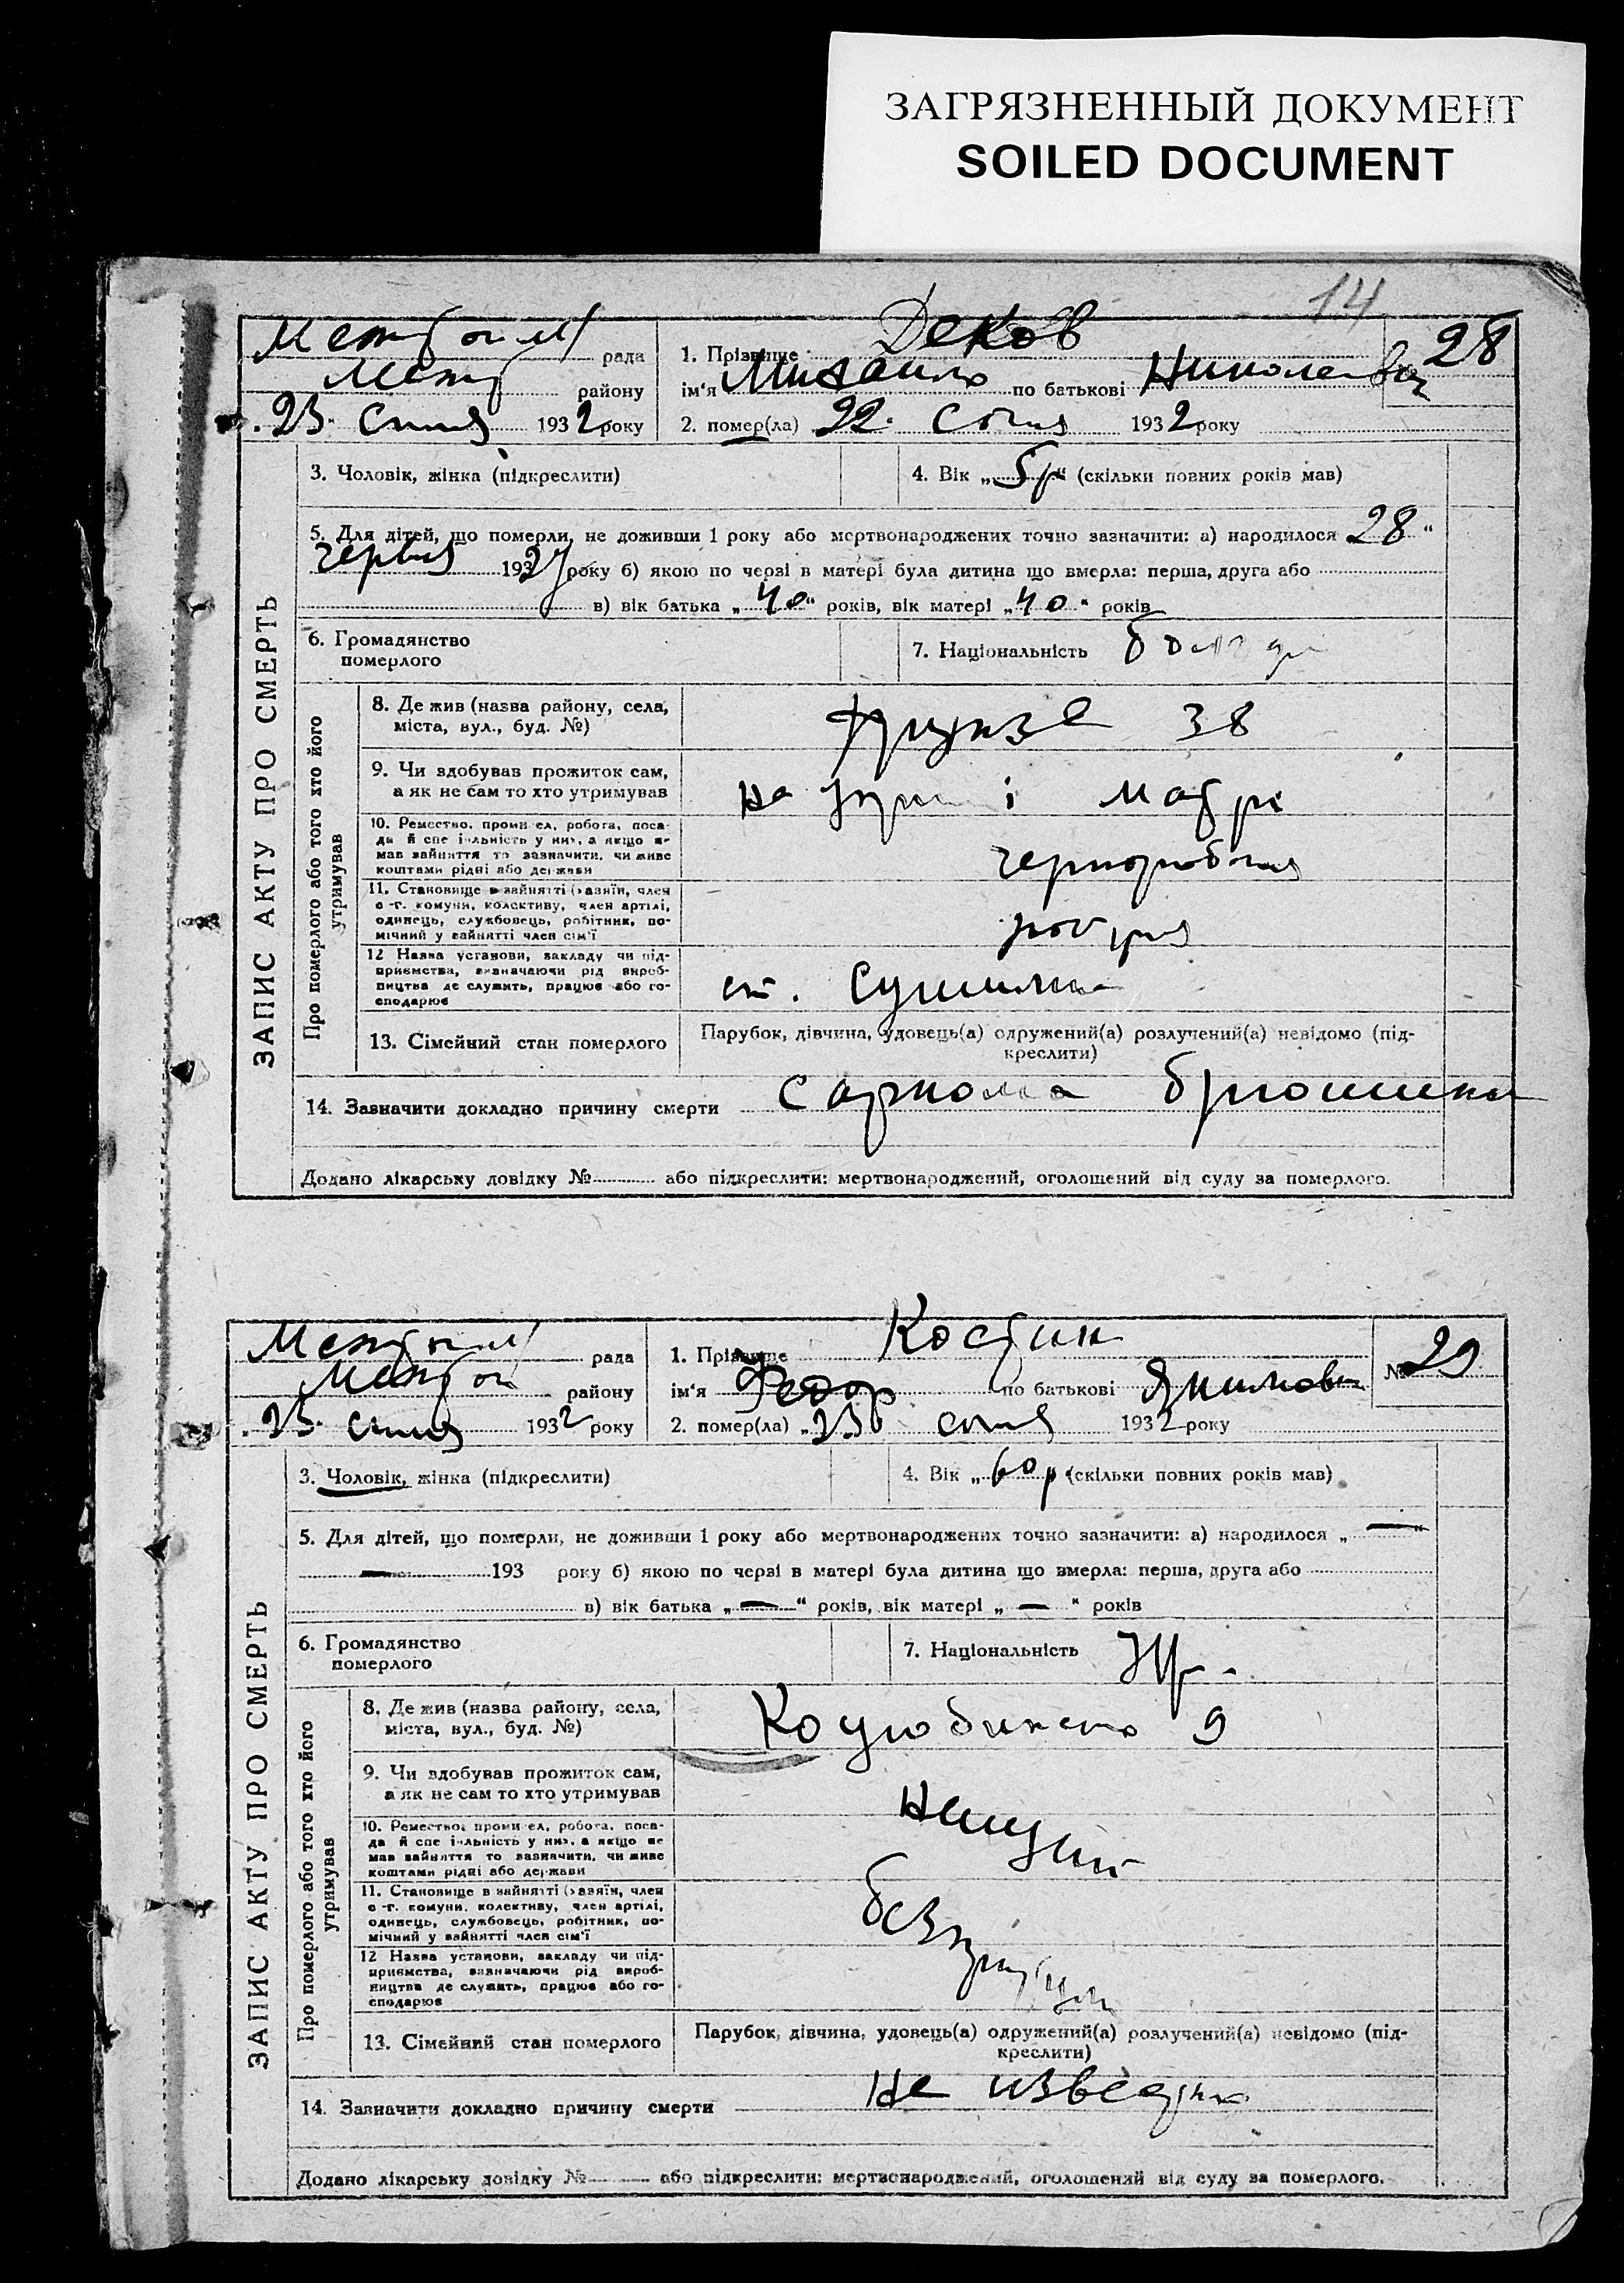 ЗАГРЯЗНЕННЫЙ ДОКУМЕНТ
SOILED DOCUMENT
14
рада
району
23. січня 1932 року
1. Прізвище Деков
ім'я Михаил по батькові Николаевич
28
2. помер(ла) 22. січня 1932 року
ЗАПИС АКТУ ПРО СМЕРТЬ
3. Чоловік, жінка (підкреслити)
4. Вік „5 р“ (скільки повних років мав)
5. Для дітей, що померли, не доживши 1 року або мертвонароджених точно зазначити: а) народилося 28“
червня 1927 року б) якою по черзі в матері була дитина що вмерла: перша, друга або
в) вік батька „40“ років, вік матері „40“ років
6. Громадянство
померлого
7. Національність
Про померлого або того хто його
утримував
8. Де жив (назва району, села,
міста, вул., буд. №)
Фрунзе 38
9. Чи здобував прожиток сам,
а як не сам то хто утримував
на і
10. Ремество, промисел, робота, поса-
да й спеціяльність у них, а якщо не
мав зайняття то зазначити, чи живе
коштами рідні або держави
11. Становище в зайнятті (хазяїн, член
с.-г. комуни, колективу, член артілі,
одинець, службовець, робітник, по-
мічний у зайнятті член сім'ї
12 Назва установи, закладу чи під-
приємства, визначаючи рід вироб-
ництва де служить, працює або го-
сподарює
ст.
13. Сімейний стан померлого
Парубок, дівчина, удовець(а) одружений(а) розлучений(а) невідомо (під-
креслити)
14. Зазначити докладно причину смерти саркома брюшины
Додано лікарську довідку № або підкреслити: мертвонароджений, оголошений від суду за померлого.
рада
району
23. січня 1932 року
1. Прізвище Костин
ім'я Федор по батькові
№ 29
2. помер(ла) „23 січня 1932 року
ЗАПИС АКТУ ПРО СМЕРТЬ
3. Чоловік, жінка (підкреслити)
4. Вік „60 р (скільки повних років мав)
5. Для дітей, що померли, не доживши 1 року або мертвонароджених точно зазначити: а) народилося „—“
— 193 року б) якою по черзі в матері була дитина що вмерла: перша, друга або
в) вік батька „—“ років, вік матері „—“ років
6. Громадянство
померлого
7. Національність Укр.
Про померлого або того хто його
утримував
8. Де жив (назва району, села,
міста, вул., буд. №)
Коцюбинского 9
9. Чи здобував прожиток сам,
а як не сам то хто утримував
10. Ремество, промисел, робота, поса-
да й спеціяльність у них, а якщо не
мав зайняття то зазначити, чи живе
коштами рідні або держави
11. Становище в зайнятті (хазяїн, член
с.-г. комуни, колективу, член артілі,
одинець, службовець, робітник, по-
мічний у зайнятті член сім'ї
12 Назва установи, закладу чи під-
приємства, визначаючи рід вироб-
ництва де служить, працює або го-
сподарює
13. Сімейний стан померлого
Парубок, дівчина, удовець(а) одружений(а) розлучений(а) невідомо (під-
креслити)
14. Зазначити докладно причину смерти не
Додано лікарську довідку № або підкреслити: мертвонароджений, оголошений від суду за померлого.